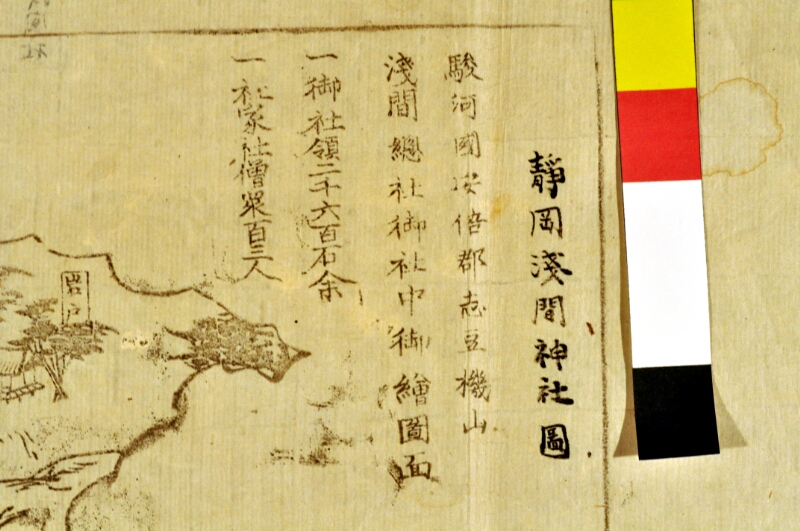 靜岡淺間神社圖
駿河國安倍郡志豆機山
淺間總社御社中御繪圖面
一御社領二千六百石余
一社家社僧衆百三人
岩戸